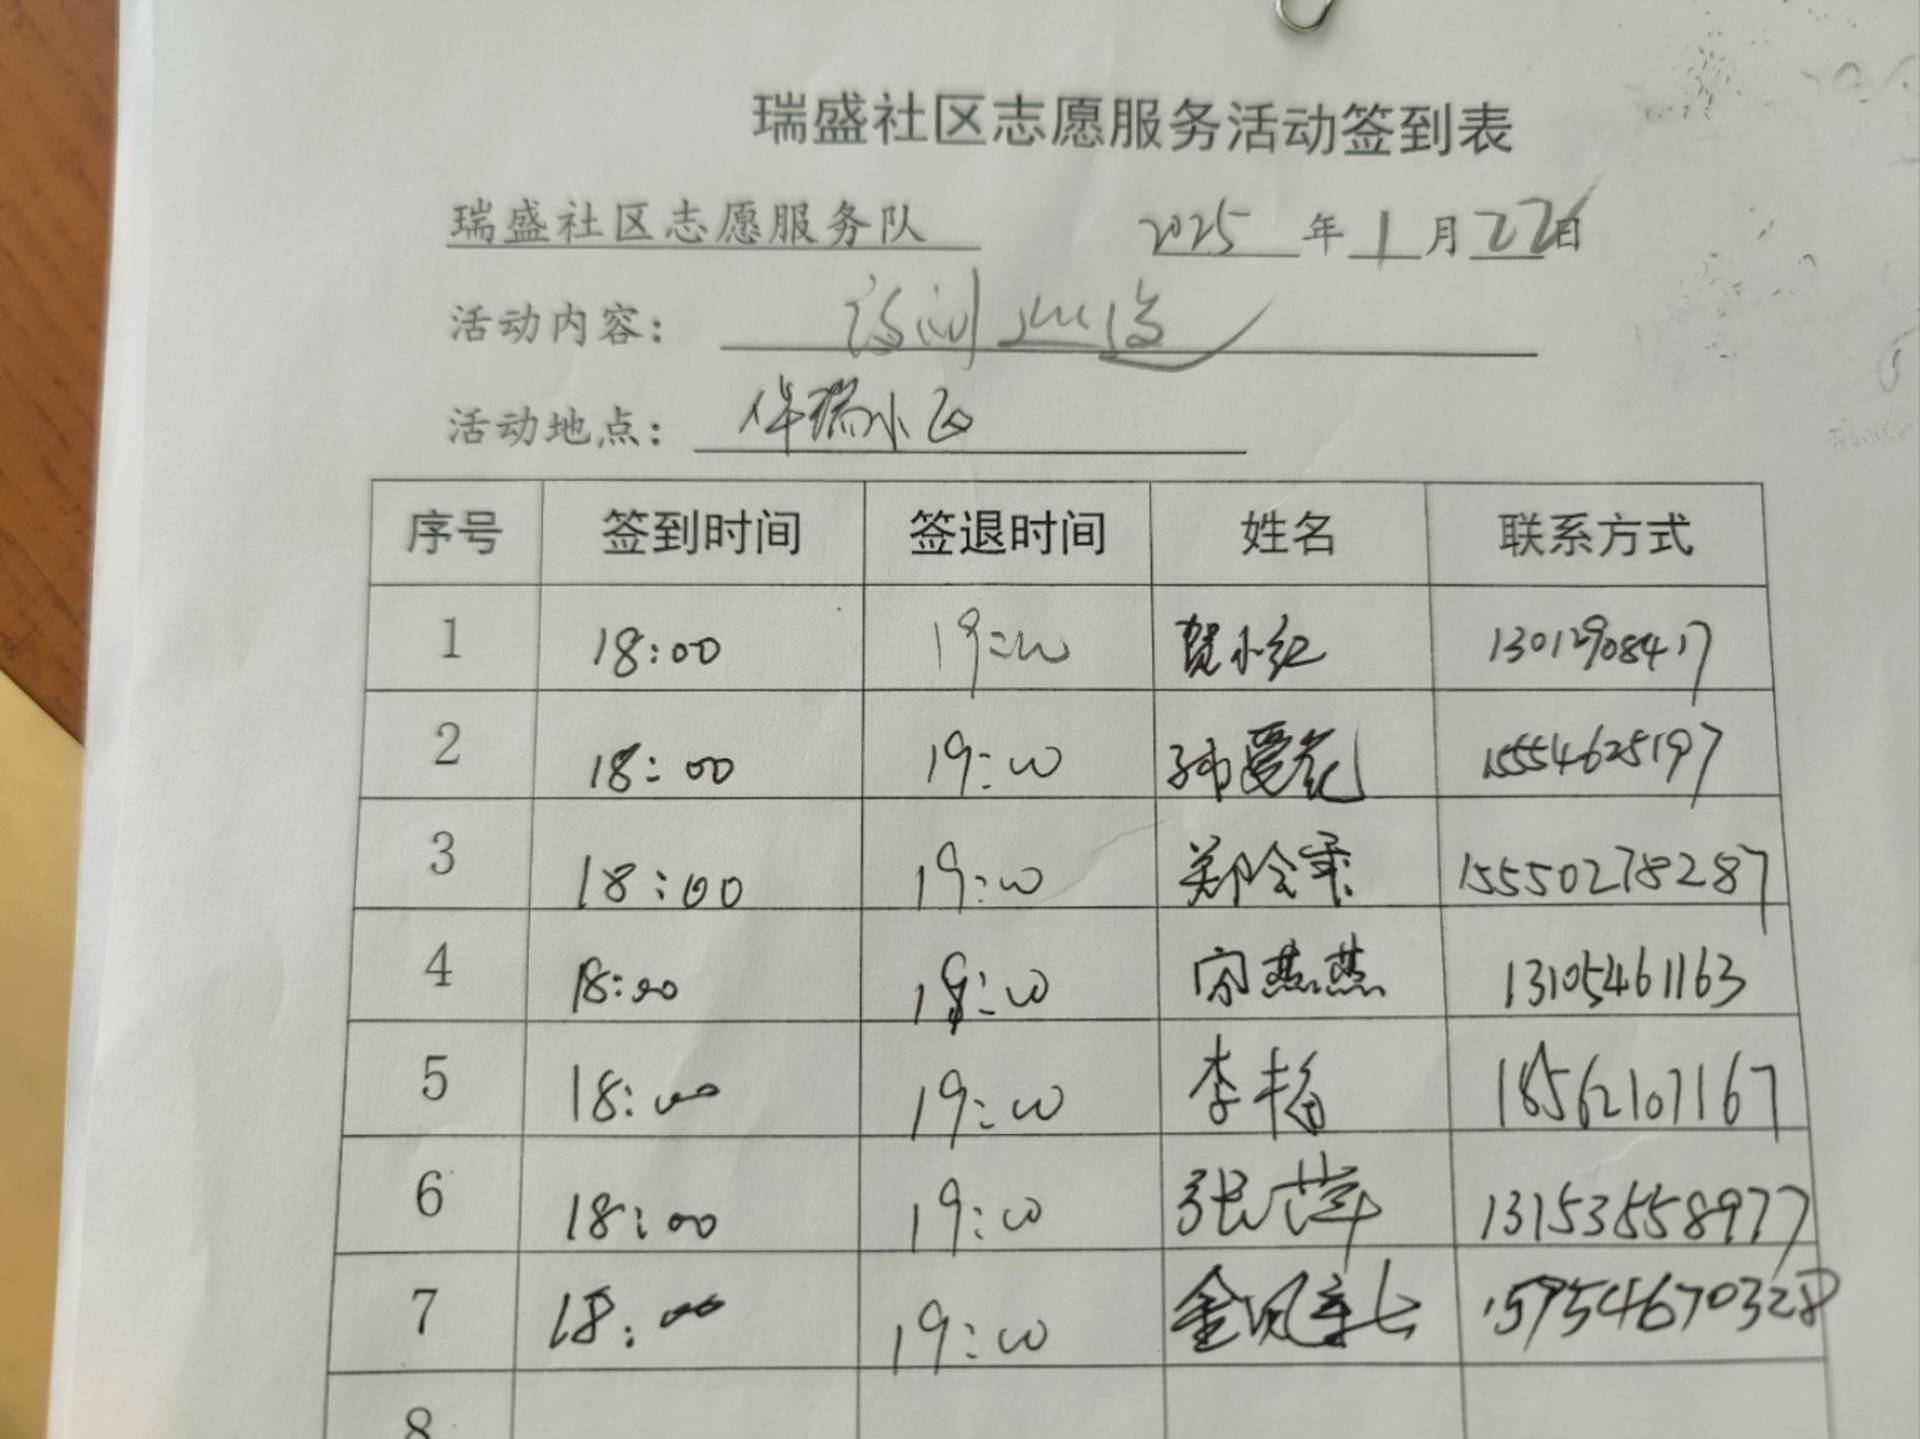 瑞盛社区志愿服务活动签到表
瑞盛社区志愿服务队 2025 年 1 月 22 日
活动内容：
活动地点： 华瑞小区
序号 签到时间 签退时间 姓名 联系方式
1 18:00 19:00 贺小红 13012908417
2 18:00 19:00 15554625197
3 18:00 19:00 郑 15550278287
4 18:00 19:00 宋燕燕 13105461163
5 18:00 19:00 李梅 18562107167
6 18:00 19:00 张萍 13153558977
7 18:00 19:00 金凤 15954670328
8